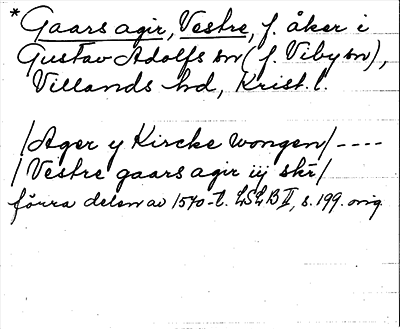 *Gaars agir, Vestre, f. åker i
Gustav Adolfs sn (f. Viby sn),
Villands hd, Krist. l.
/Ager y Kircke wongen/ ----
/Vestre gaars agir iij skr/
förra delen av 1570-t. LSLB II, s. 199. orig.